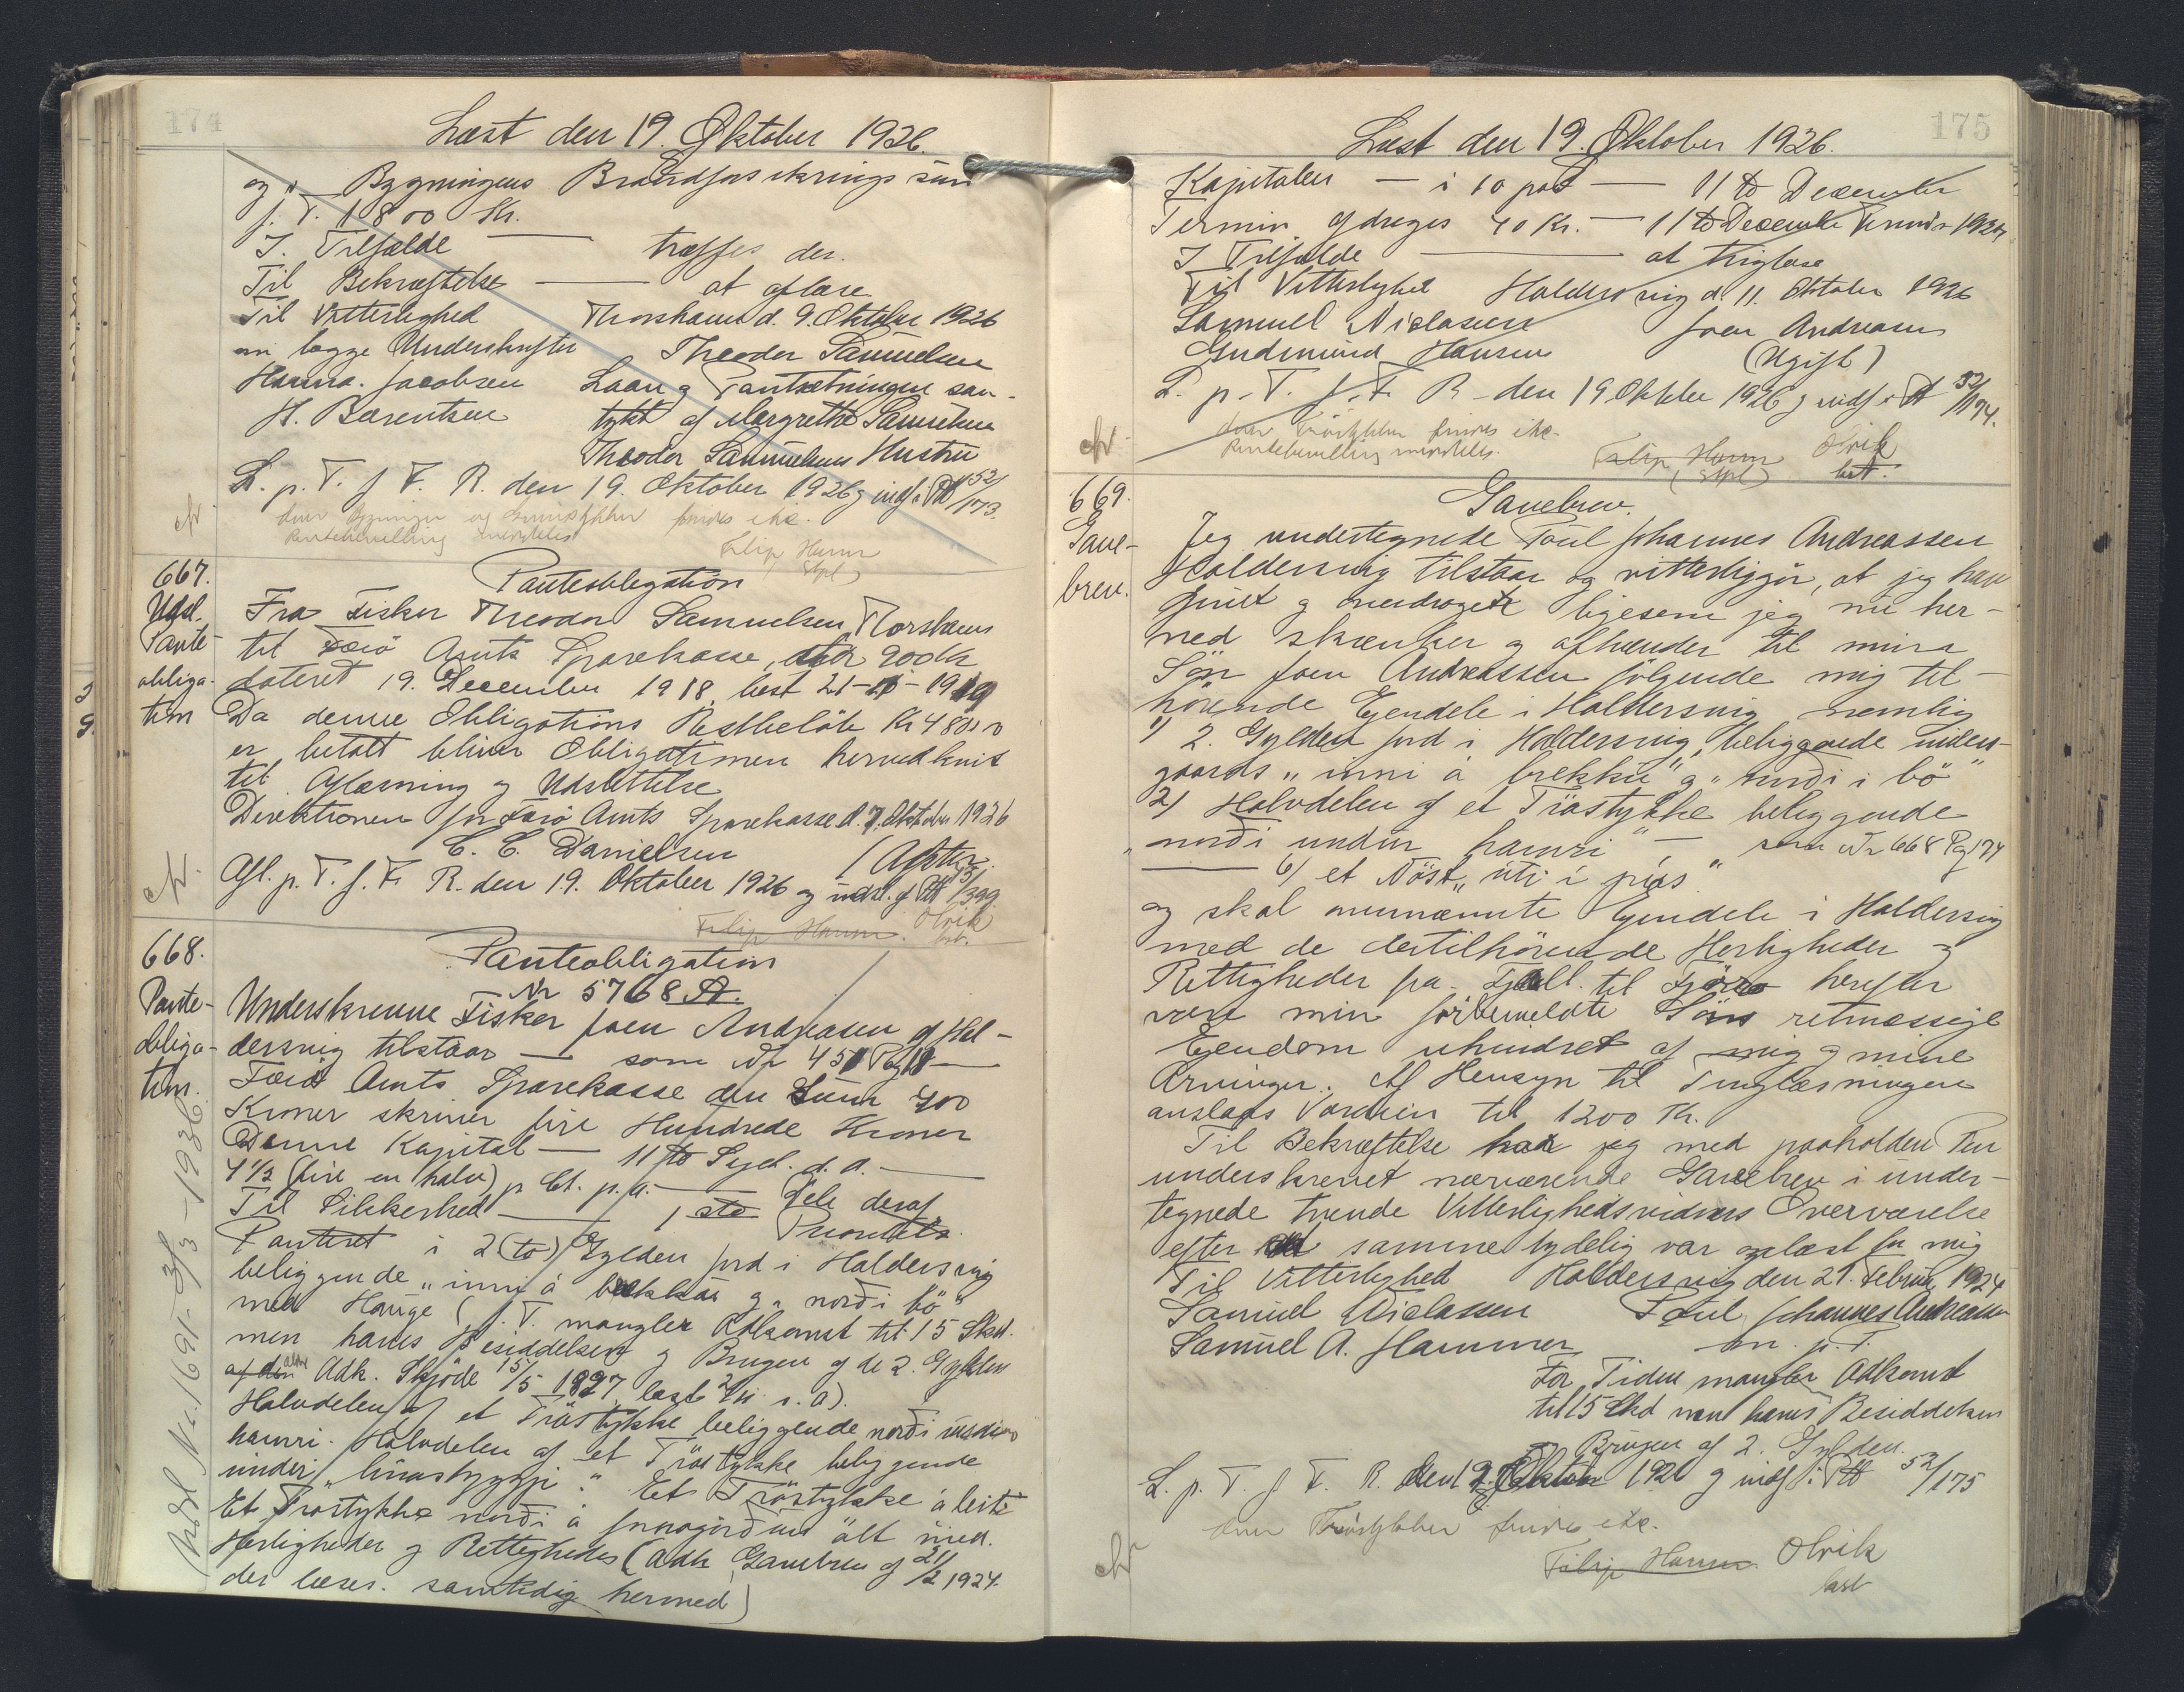 174
Læst den 19. Oktober 1926.
og " — Bygningens Brandforsikringssum
f. T. 1800 Kr.
I. Tilfælde — træffes der.
Til Bekræftelse — at aflæse.
Til Vitterlighed Thorshavn d. 9. Oktober 1926
om begge Underskrifter Theodor Samuelsen
Hanna Jacobsen Laan og Pantsætningen sam-
H. Barentsen tykt af Margretha Samuelsen
Theodor Samuelsens Hustru
L. p. T. f. F. R. den 19. Oktober 1926 og indf. i PB 52/173.
findes ikke.
Rentebevilling meddeles
Filip Hamm
Stpl)
667.
Udsl.
Pante-
obliga-
tion
Panteobligation
Fra Fisker Theodor Samuelsen Thorshavn
til Færø Amts Sparekasse, stor 900 Kr
dateret 19. December 1918, læst 21-1-1919
Da denne Obligations Restbeløb Kr 480,00
er betalt bliver Obligationen herved kvit
til Aflæsning og Udslettelse
Direktionen for Færø Amts Sparekasse d. 7. Oktober 1926
C. C. Danielsen
Afl. p. T. f. F. R. den 19. Oktober 1926 og udsl. af PB 51/399.
Filip Hamm. Olrik
bet.
668.
Pante-
obliga-
tion.
Udsl. Nr. 1691-3/3-1936
Panteobligation
Nr 5768 A.
Underskrevne Fisker Joen Andreasen af Hal-
dersvig tilstaar — som Nr 451 Pag 11 —
Færø Amts Sparekasse den Sum 400
Kroner skriver fire Hundrede Kroner
Denne Kapital — 11 te Sept. d. A. —
4 1/2 (fire en halv) p Ct. p. a. — Dele deraf
Til Sikkerhed — 1 ste Prioritets
Panteret i 2 (to) Gylden Jord i Haldersvig
beliggende "inni á brekkú" og "norði í bö"
med Hauge (f. T. mangler Adkomst til 15 Skd.
men haves Besiddelsen og Brugen af de 2. Gylden
Adk. Skjöde 15/5 1897 læst 2/11 s. A).
Halvdelen af et Tröstykke beliggende norði undir
hamri. Halvdelen af et Tröstykke beliggende
undir húsabyggji. Et Tröstykke á leiti
Et Tröstykke norði á alt med.
Herligheder og Rettigheder (Adk Gavebrev af 21/2 1924.
der læses samtidig hermed)
175
Læst den 19. Oktober 1926.
Kapitalen — i 10 pat — 11 te December
Termin. Afdrages 40 Kr. — 11 te December Termin 1926
I Tilfælde — at tinglæse
Til Vitterlighed Haldersvig d. 11. Oktober 1926
Samuel Niclasen Joen Andreasen
Gudmund Hansen (Ugift)
L. p. T. f. F. R. den 19 Oktober 1926 og indf. i PB 52/174.
Tröstykker findes ikke.
Rentebevilling meddeles. Filip Hamm Olrik
(Stpl) bet.
669.
Gave-
brev.
Gavebrev.
Jeg undertegnede Poul Johannes Andreassen
Haldersvig tilstaar og vitterliggör, at jeg have
givet og overdraget ligesom jeg nu her-
ved skænker og afhænder til min
Sön Joen Andreassen fölgende mig til-
hörende Ejendele i Haldersvig nemlig
1) 2. Gylden Jord i Haldersvig, beliggende inden-
gaards "inni á brekkú" og "norði í bö"
2) Halvdelen af et Tröstykke beliggende
"norði undir hamri" — som Nr 668 Pg 174
— 6) et Nöst "úti í gjás"
og skal ovennævnte Ejendele i Haldersvig
med de dertilhörende Herligheder og
Rettigheder fra Fjell til Fjöre herefter
være min förbemeldte Söns retmæssige
Ejendom uhindret af mig og mine
Arvinger. Af Hensyn til Tinglæsningen
anslaas Værdien til 1200 Kr.
Til Bekræftelse har jeg med paaholden Pen
underskrevet nærværende Gavebrev i under-
tegnede tvende Vitterlighedsvidners Overværelse
efter at samme tydelig var oplæst for mig
Til Vitterlighed Haldersvig den 21. Februar 1924
Samuel Niclassen Poul Johannes Andreasen
Samuel A. Hammer m. p. P.
For Tiden mangler Adkomst
til 15 Skd men haves Besiddelsen
og Brugen af 2. Gylden.
L. p. T. f. F. R. den 19 Oktober 1926 og indf. i PB 52/175
Tröstykker findes ikke.
Filip Hamm. Olrik
læst